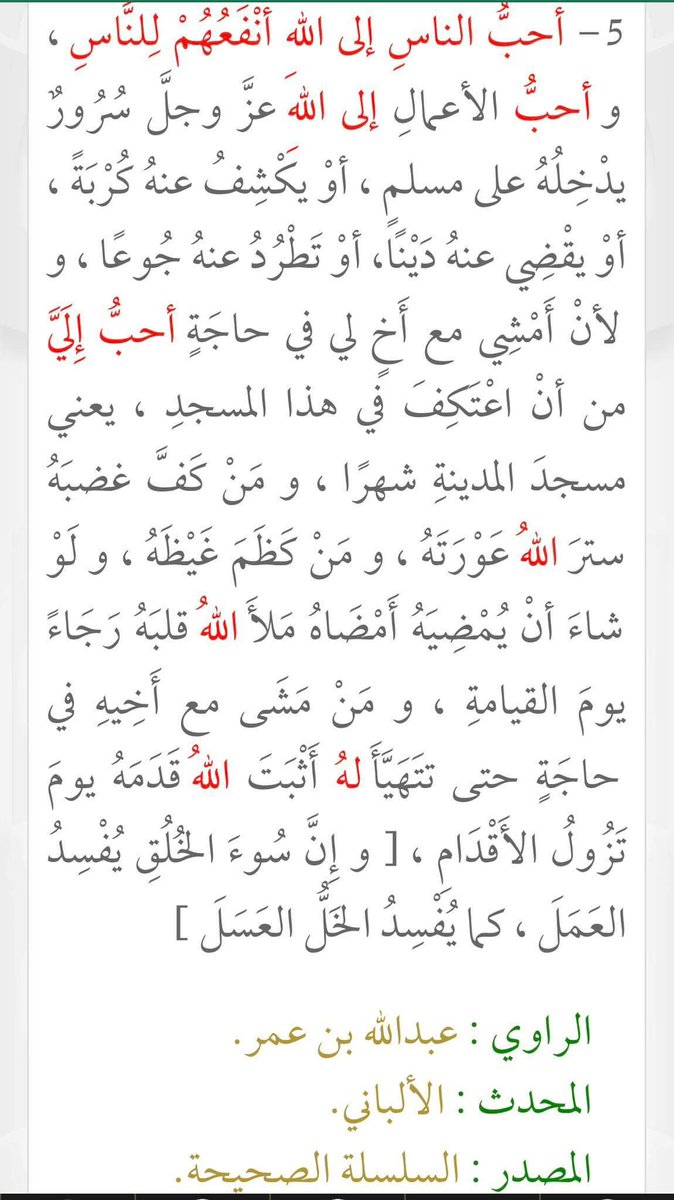 5 - أحبُّ الناسِ إلى اللهِ أنْفَعُهُمْ لِلنَّاسِ ،
و أحبُّ الأعمالِ إلى اللهِ عزَّ وجلَّ سُرُورٌ
يدْخِلُهُ على مسلمٍ ، أوْ يكْشِفُ عنهُ كُرْبَةً ،
أوْ يقْضِي عنهُ دَيْنًا، أوْ تَطْرُدُ عنهُ جُوعًا ، و
لأنْ أَمْشِي مع أَخٍ لي في حاجَةٍ أحبُّ إِلَيَّ
من أنْ اعْتَكِفَ في هذا المسجدِ ، يعني
مسجدَ المدينةِ شهرًا ، و مَنْ كَفَّ غضبَهُ
سترَ اللهُ عَوْرَتَهُ ، و مَنْ كَظَمَ غَيْظَهُ ، و لَوْ
شاءَ أنْ يُمْضِيَهُ أَمْضَاهُ مَلأَ اللهُ قلبَهُ رَجَاءً
يومَ القيامةِ ، و مَنْ مَشَى مع أَخِيهِ في
حاجَةٍ حتى تتَهَيَّأَ لهُ أَثْبَتَ اللهُ قَدَمَهُ يومَ
تَزُولُ الأَقْدَامِ ، [ و إِنَّ سُوءَ الخُلُقِ يُفْسِدُ
العَمَلَ ، كما يُفْسِدُ الخَلُّ العَسَلَ ]
الراوي : عبدالله بن عمر.
المحدث : الألباني.
المصدر : السلسلة الصحيحة.